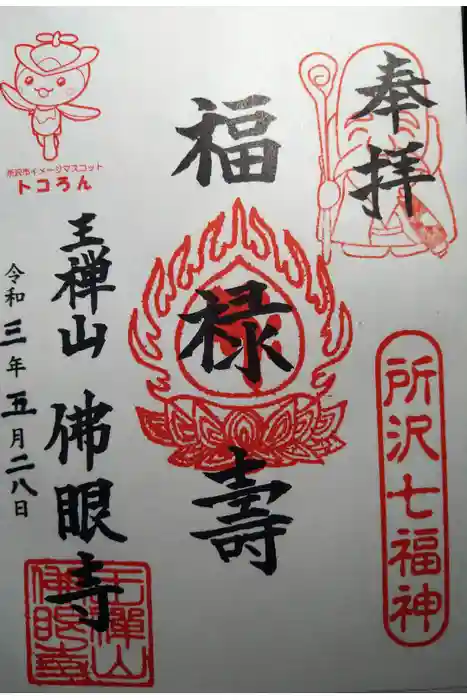 奉拝
所沢七福神
福
禄
壽
所沢市イメージマスコット
トコろん
王禅山 佛眼寺
令和三年五月二八日
王禪山
佛眼寺